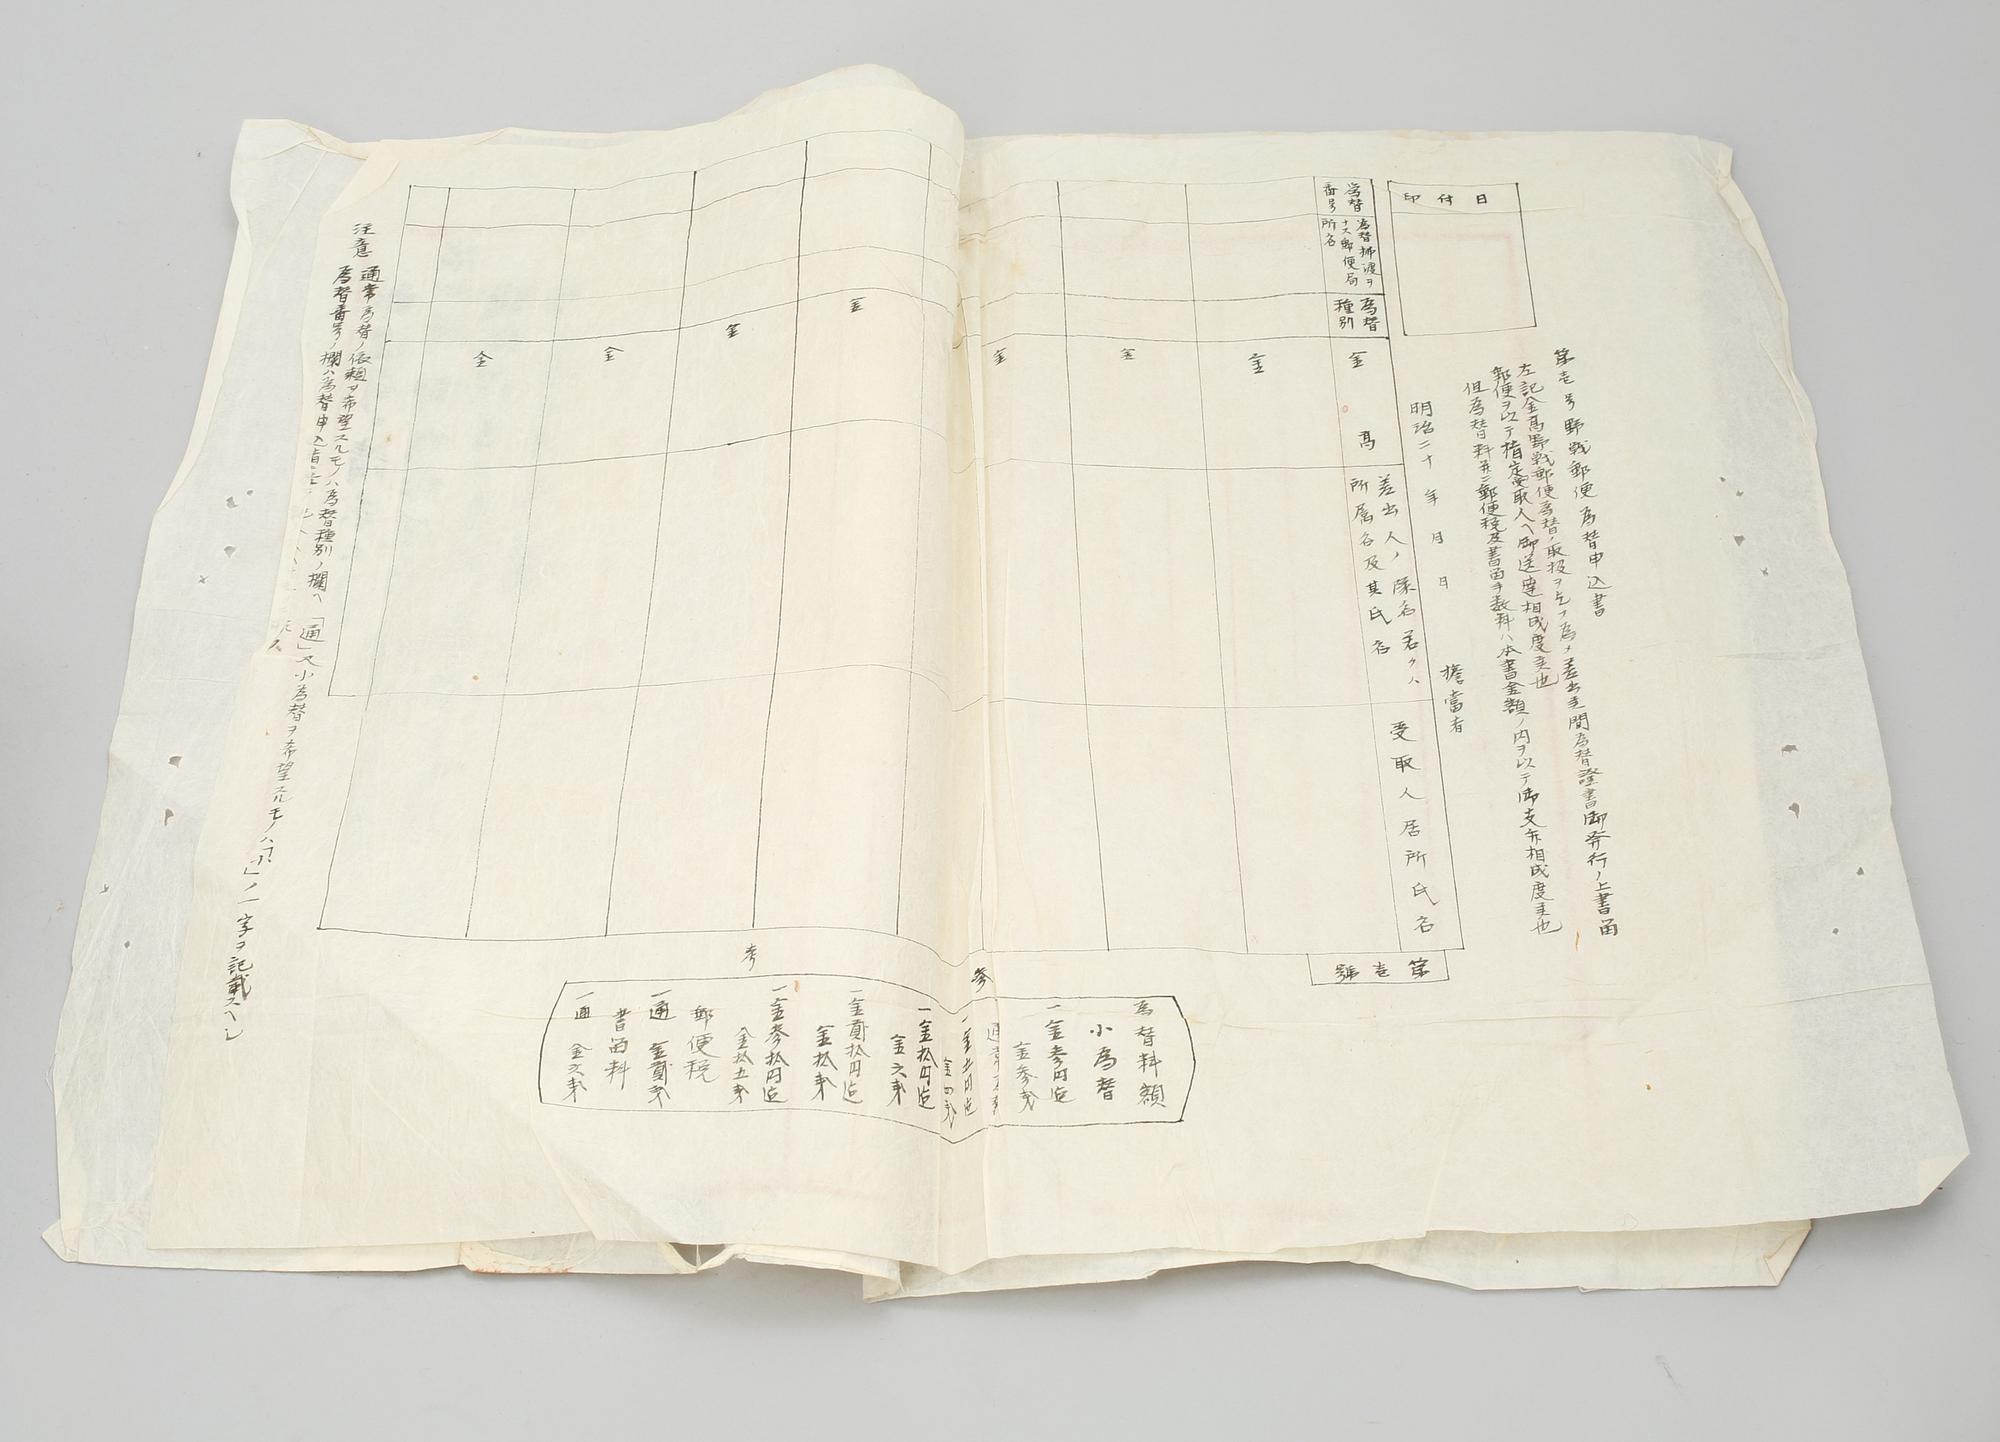 第壱号野戦郵便為替申込書
左記金高野戦郵便為替ノ取扱ヲ乞フ為メ差出主間為替證書御発行ノ上書函
郵便ヲ以テ指定受取人ヘ御送達相成度候也
但為替料并ニ郵便税及書函手数料ハ本書金額ノ内ヲ以テ御支弁相成度候也
日付印
明治二十 年 月 日
擔當者
為替番号
為替拂渡ヲナス郵便局所名
為替種別
金高
差出人ノ隊名若クハ所属名及其氏名
受取人居所氏名
金
金
金
金
金
金
金
第壱號
注意
通常為替ノ依頼ヲ希望スルモノハ為替種別ノ欄ヘ「通」又小為替ヲ希望スルモノハ「小」ノ一字ヲ記載スヘシ
為替番号ノ欄ハ為替申込
参
考
為替料額
小為替
一金参円迄
金参銭
一金拾円迄
金六銭
一金貳拾円迄
金拾銭
一金参拾円迄
金拾五銭
郵便税
一通 金貳銭
書函料
一通 金六銭